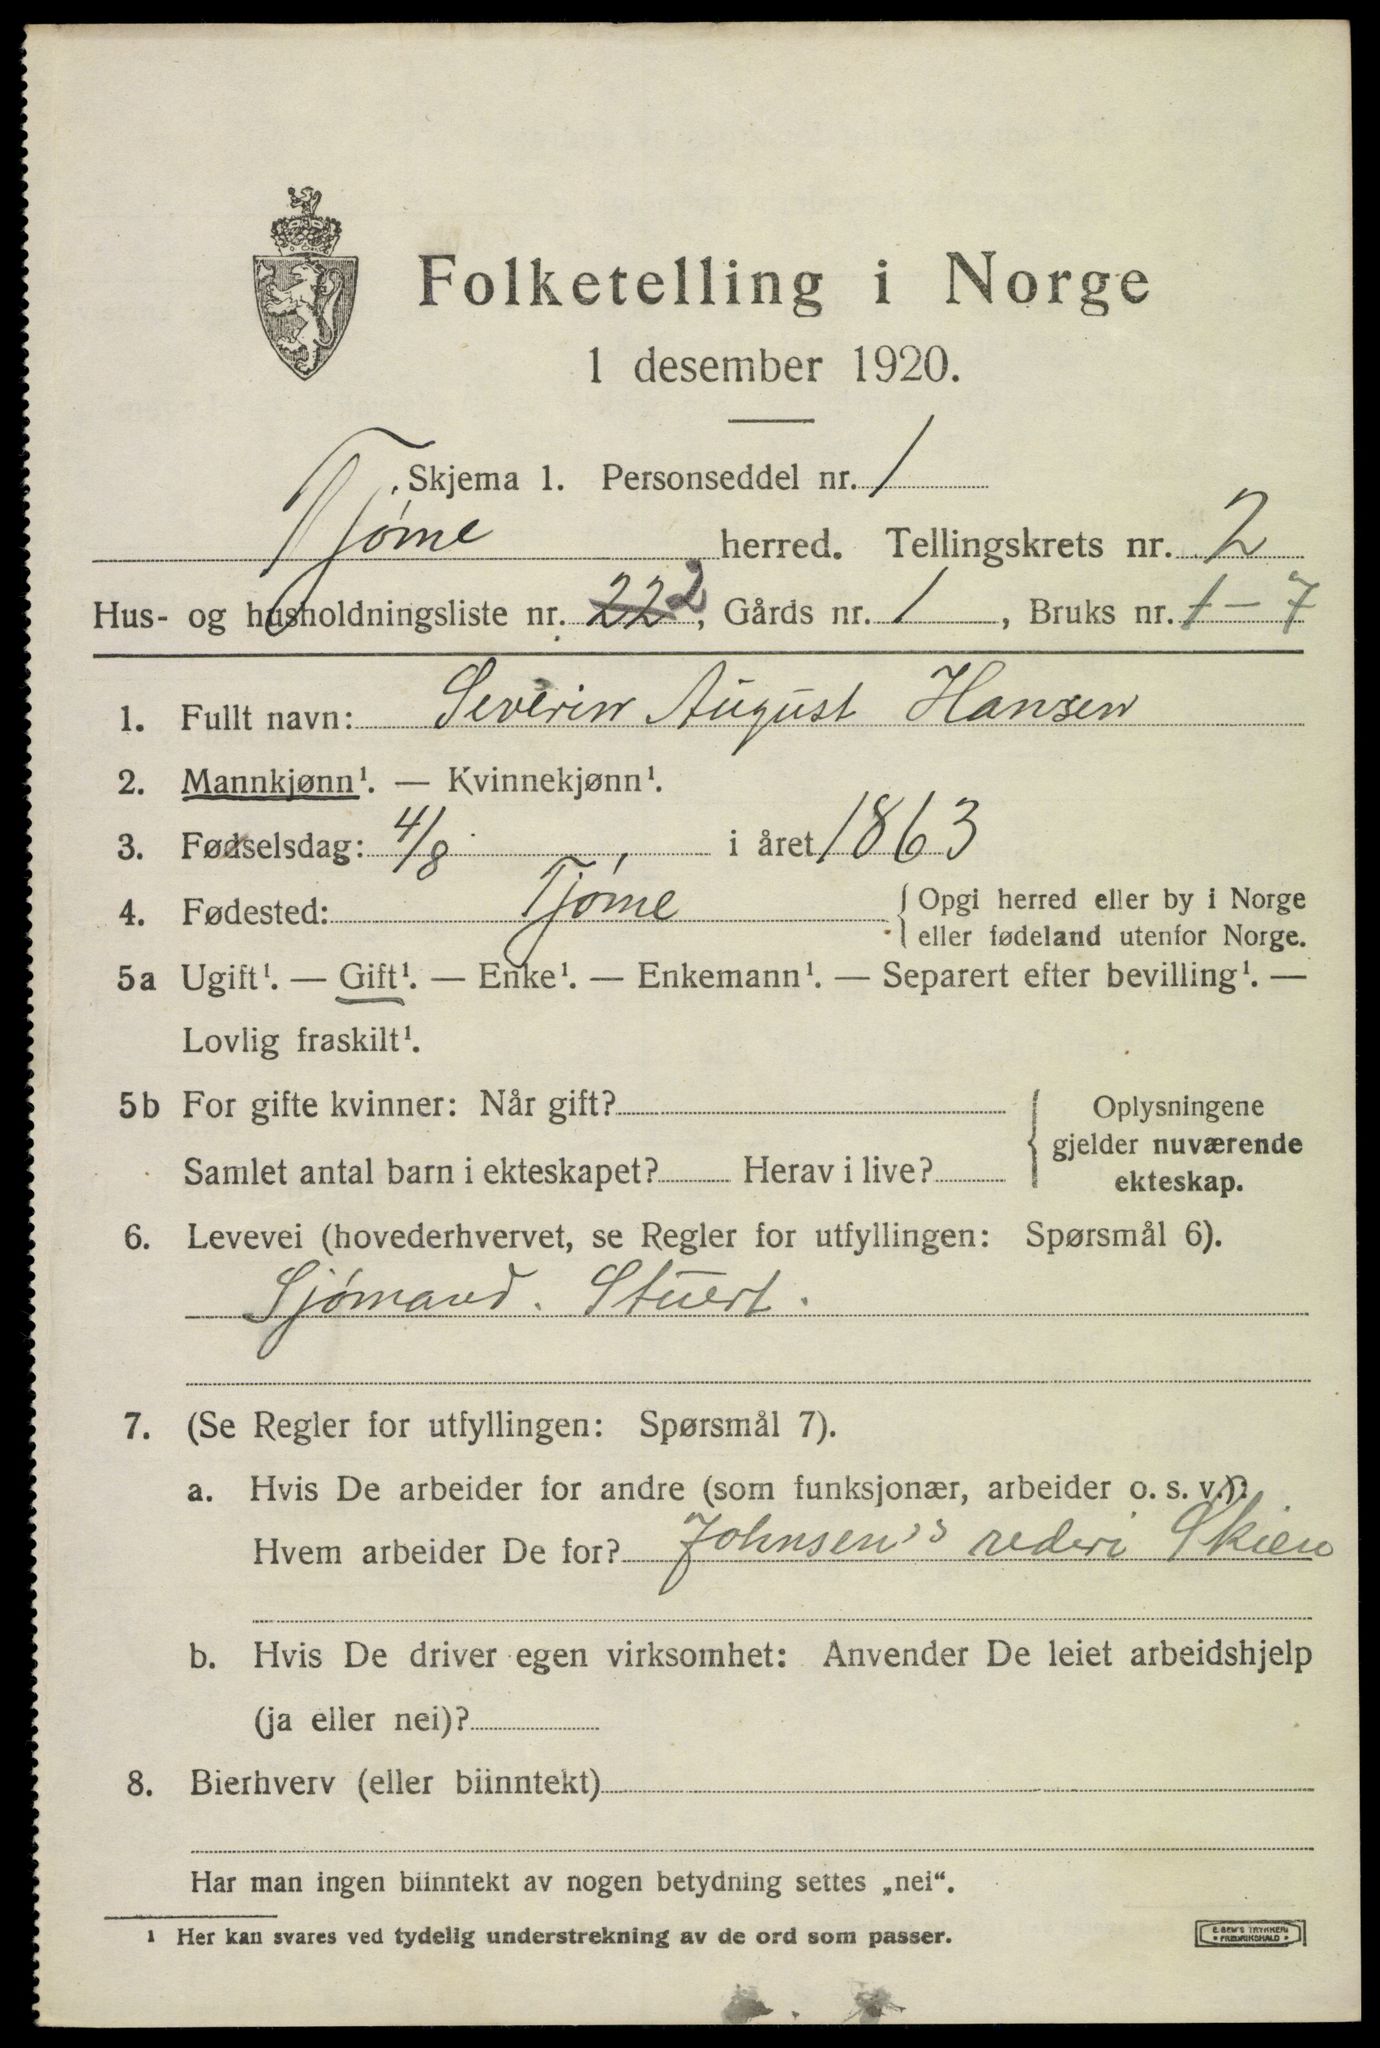 Folketelling i Norge
1 desember 1920.
Skjema 1. Personseddel nr. 1
Tjøme herred. Tellingskrets nr. 2
Hus- og husholdningsliste nr. 22 2, Gårds nr. 1, Bruks nr. 1-7
1. Fullt navn: Severin August Hansen
2. Mannkjønn¹. — Kvinnekjønn¹.
3. Fødselsdag: 4/8 i året 1863
4. Fødested: Tjøme { Opgi herred eller by i Norge
eller fødeland utenfor Norge.
5a Ugift¹. — Gift¹. — Enke¹. — Enkemann¹. — Separert efter bevilling¹. —
Lovlig fraskilt¹.
5b For gifte kvinner: Når gift? { Oplysningene
gjelder nuværende
Samlet antal barn i ekteskapet? Herav i live? ekteskap.
6. Levevei (hovederhvervet, se Regler for utfyllingen: Spørsmål 6).
Sjømand. Stuert.
7. (Se Regler for utfyllingen: Spørsmål 7).
a. Hvis De arbeider for andre (som funksjonær, arbeider o. s. v.):
Hvem arbeider De for? Johnsen's rederi Skien
b. Hvis De driver egen virksomhet: Anvender De leiet arbeidshjelp
(ja eller nei)?
8. Bierhverv (eller biinntekt)
Har man ingen biinntekt av nogen betydning settes „nei“.
¹ Her kan svares ved tydelig understrekning av de ord som passer.
E. SEM'S TRYKKERI
• FREDRIKSHALD •